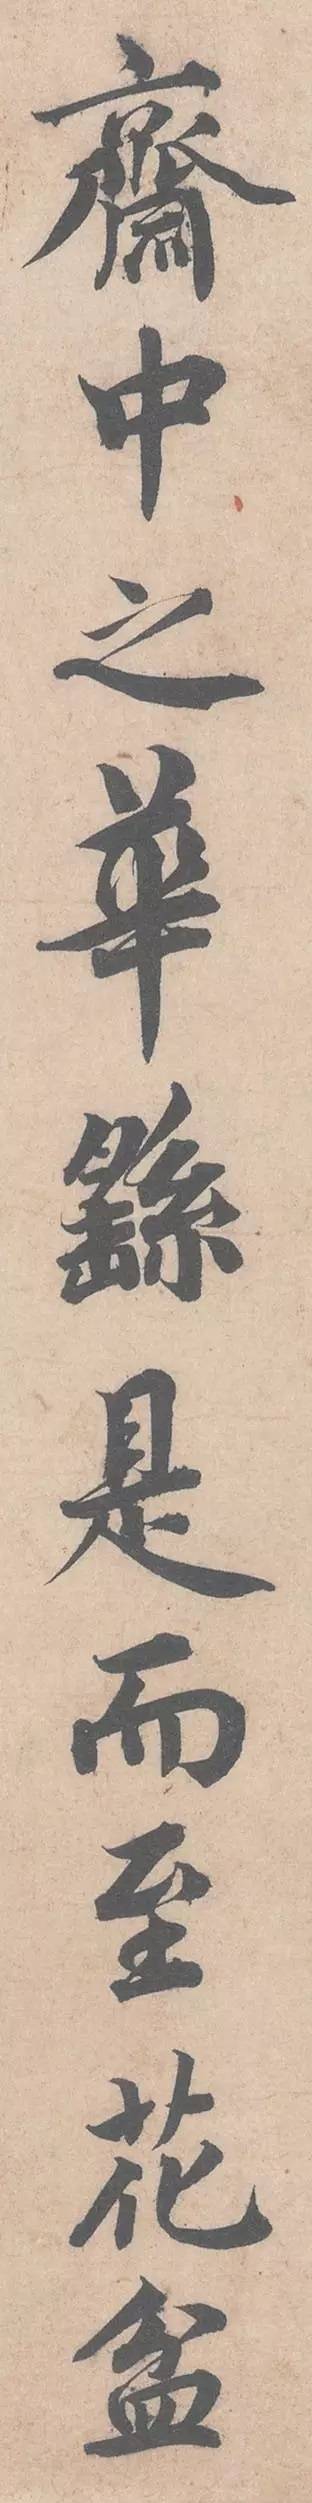 齋中之華繇是而至花盆